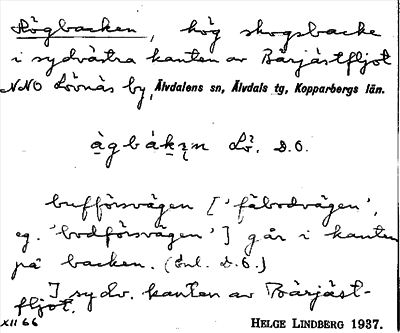 Högbacken, hög skogsbacke
i sydvästra kanten av Bärjästfljot
NNO Lövnäs by, Älvdalens sn, Älvdals tg, Kopparbergs län.
àgbákn̥ Lö. D.O.
bufförsvägen ['fäbodvägen',
eg. 'bodförsvägen'] går i kanten
på backen. (Enl. D.O.)
I sydv. kanten av Bärjäst-
fljot.
XII 66 HELGE LINDBERG 1937.